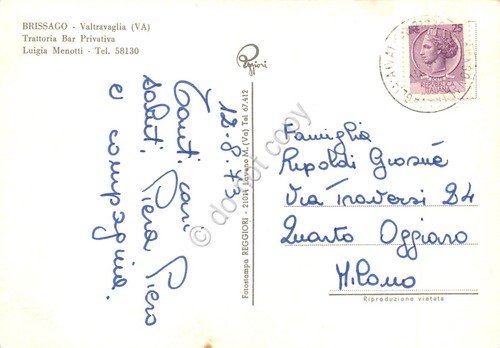 BRISSAGO - Valtravaglia (VA)
Trattoria Bar Privativa
Luigia Menotti - Tel. 58130
12-8-73
Tanti cari
saluti. Piera Piero
e compagnia.
Reggiori
Fotostampa REGGIORI - 21014 Laveno M. (Va) Tel 67.412
LIRE 25
REPUBBLICA
ITALIANA
Famiglia
Ripoldi Giosuè
Via Traversi 24
Quarto Oggiaro
Milano
Riproduzione vietata
© do not copy